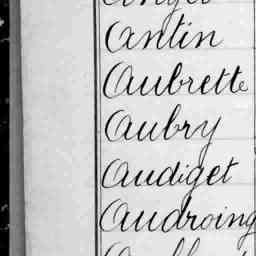 Antin
Aubrette
Aubry
Audiget
Audroing